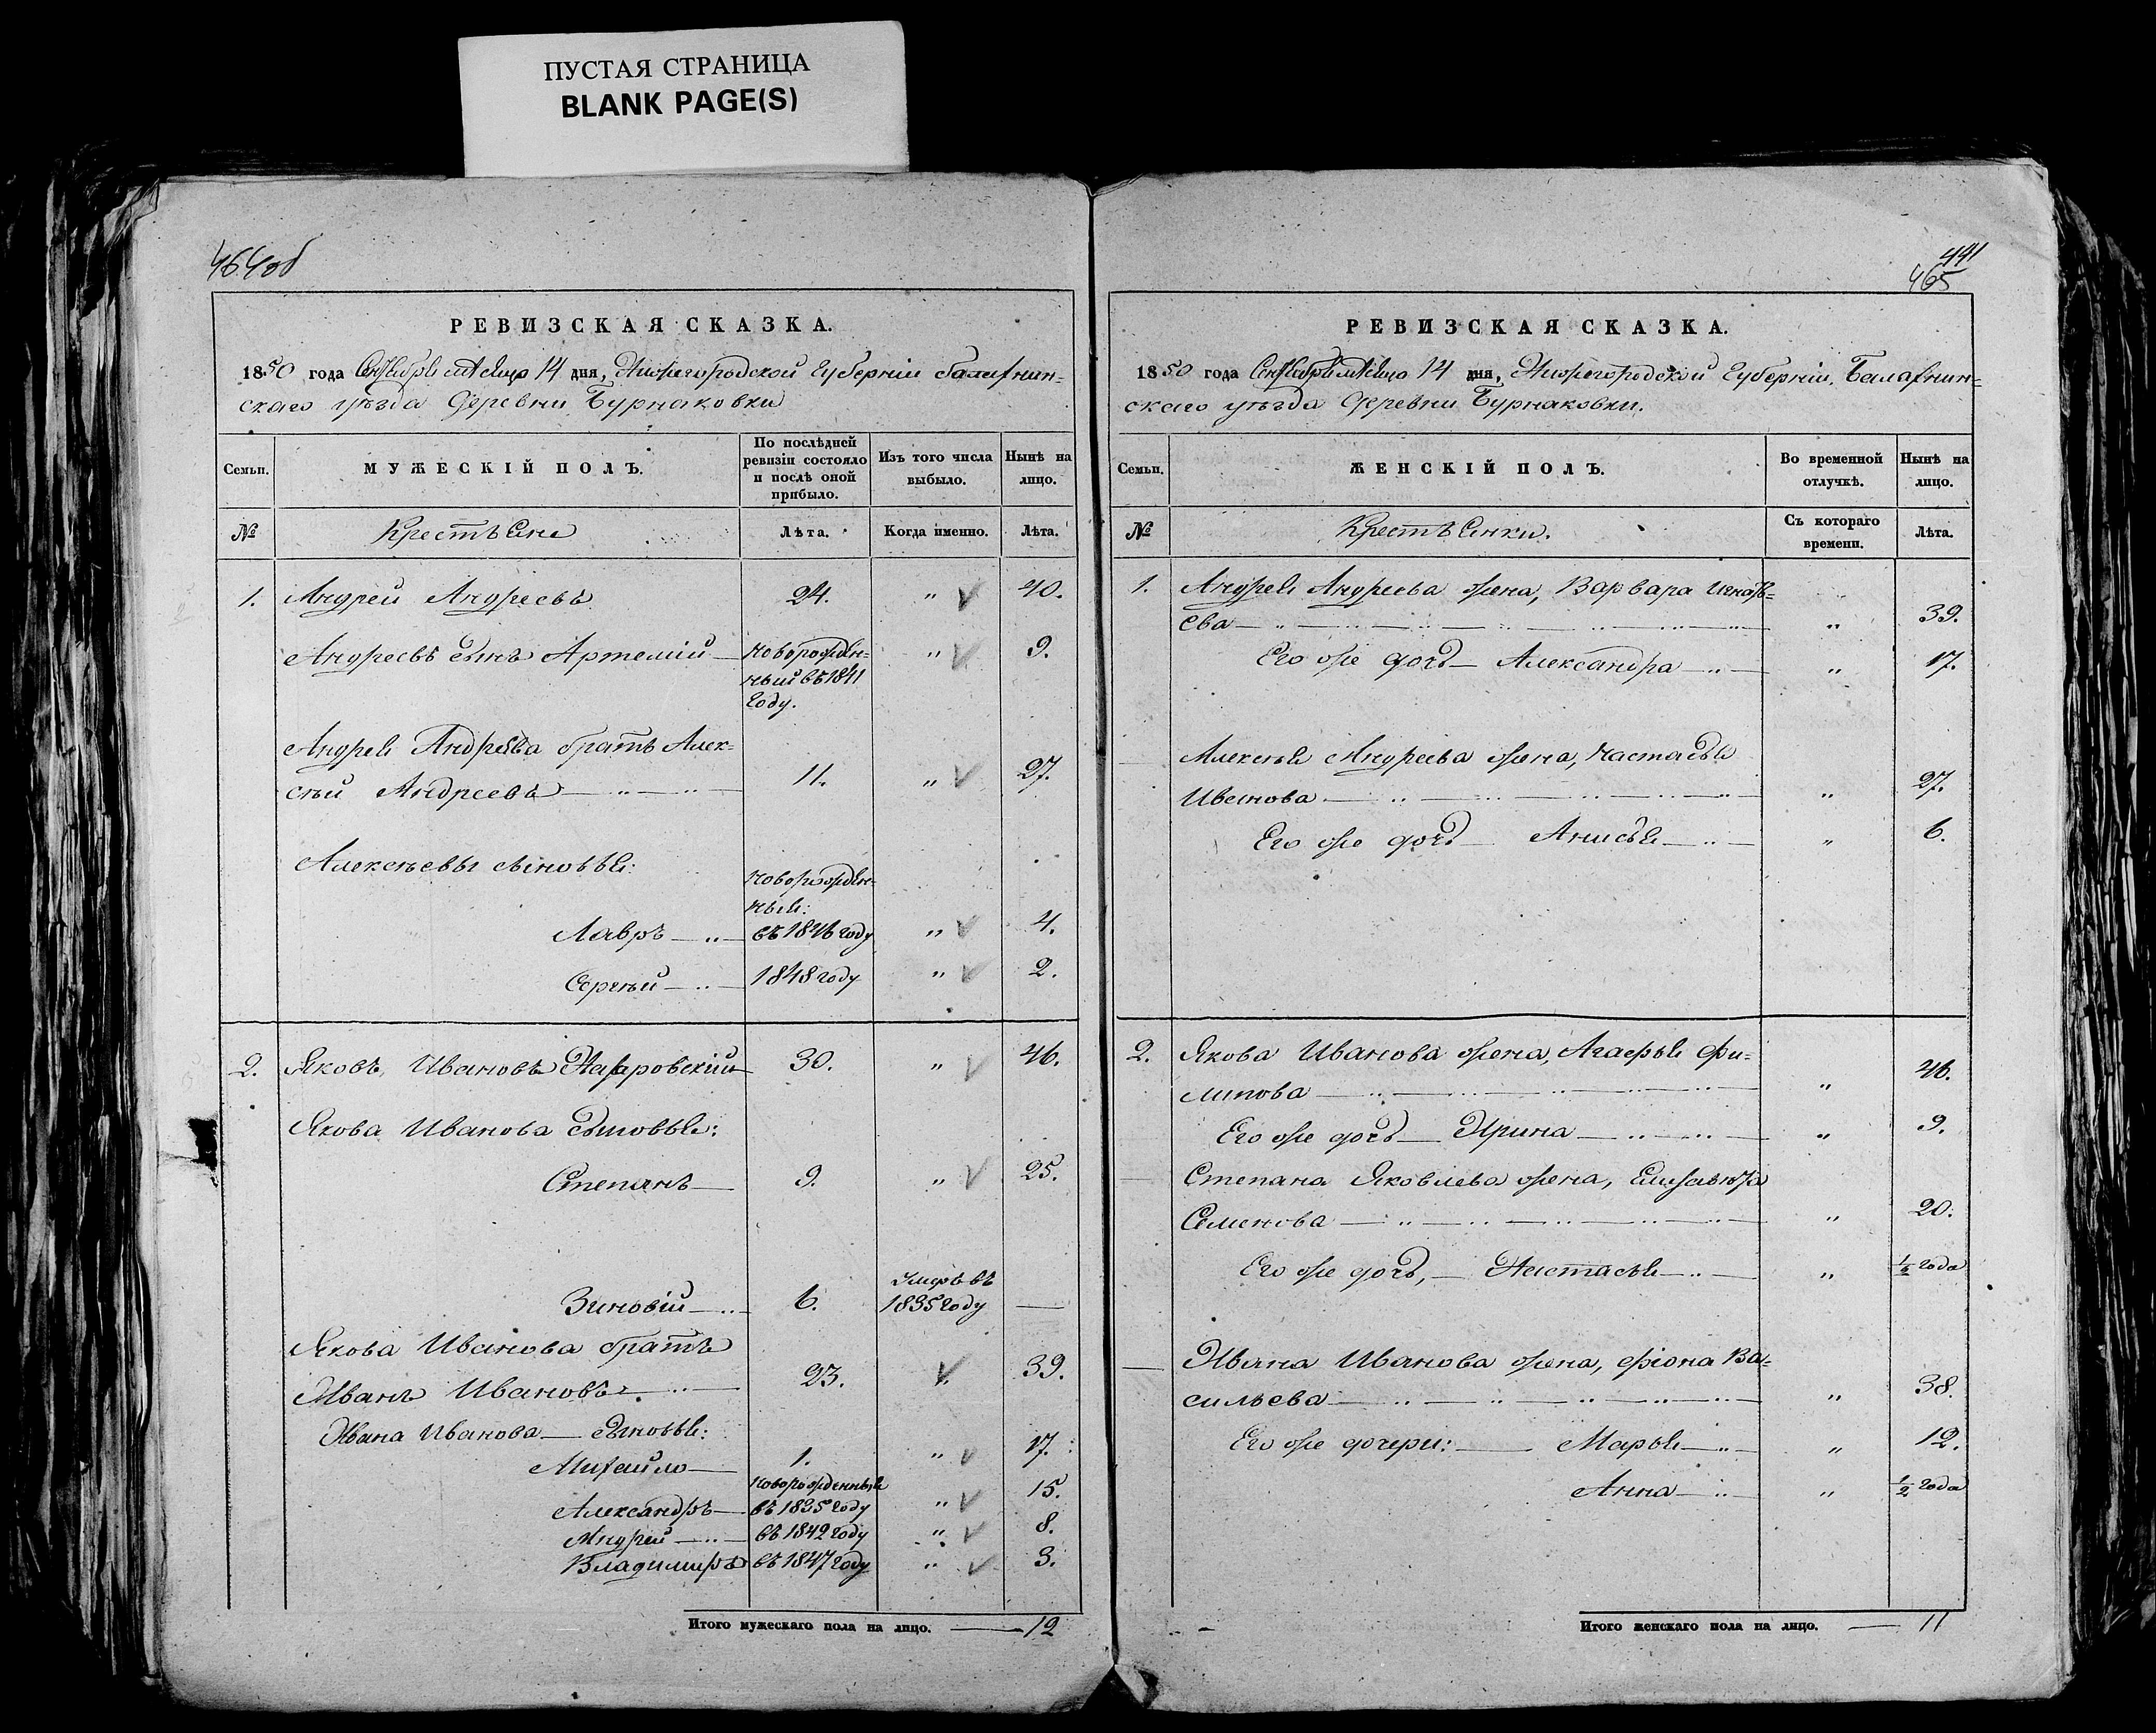 ПУСТАЯ СТРАНИЦА
BLANK PAGE(S)
464об
РЕВИЗСКАЯ СКАЗКА.
1850 года Сентября мѣсяца 14 дня, Нижегородской Губерніи Балахнин-
скаго уѣзда Деревни Бурнаковки
Семьи. МУЖЕСКІЙ ПОЛЪ. По послѣдней ревизіи состояло и послѣ оной прибыло. Изъ того числа выбыло. Нынѣ на лицо.
№ Крестьяне Лѣта. Когда именно. Лѣта.
1. Андрей Андреевъ 24. „ 40.
Андреевъ сынъ Артемій — новорожден- „ 9.
ный въ 1841
году.
Андрея Андреева братъ Алек-
сѣй Андреевъ 11. „ 27.
Алексѣевы сыновья:
новорожден-
ныя:
Лавръ въ 1846 году „ 4.
Сергѣй 1848 году „ 2.
2. Яковъ Ивановъ 30. „ 46.
Якова Иванова сыновья:
Степанъ 9. „ 25.
умре въ
Зиновій 6. 1835 году —
Якова Иванова братъ
Иванъ Ивановъ 23. „ 39.
Ивана Иванова — сыновья:
Михайло — 1. „ 17.
новорожденныя
Александръ — въ 1835 году „ 15.
Андрей въ 1842 году „ 8.
Владимиръ въ 1847 году „ 3.
Итого мужескаго пола на лицо. — 12
441
465
РЕВИЗСКАЯ СКАЗКА.
1850 года Сентября мѣсяца 14 дня, Нижегородской Губерніи, Балахнин=
скаго уѣзда Деревни Бурнаковки.
Семьи. ЖЕНСКІЙ ПОЛЪ. Во временной отлучкѣ. Нынѣ на лицо.
№ Крестьянки. Съ котораго времени. Лѣта.
1. Андрея Андреева жена, Варвара Игнать=
ева „ 39.
Его же дочь — Александра „ 17.
Алексѣя Андреева жена, Настасья
Иванова „ 27.
Его же дочь — Анисья „ 6.
2. Якова Иванова жена, Агафья Фи=
липова „ 46.
Его же дочь — Ирина „ 9.
Степана Яковлева жена, Елизавета
Семенова „ 20.
Его же дочь, — Настасья „ ½ года
Ивана Иванова жена, Фіона Ва-
сильева „ 38.
Его же дочери: — Марья „ 12.
Анна „ ½ года
Итого женскаго пола на лицо. — 11